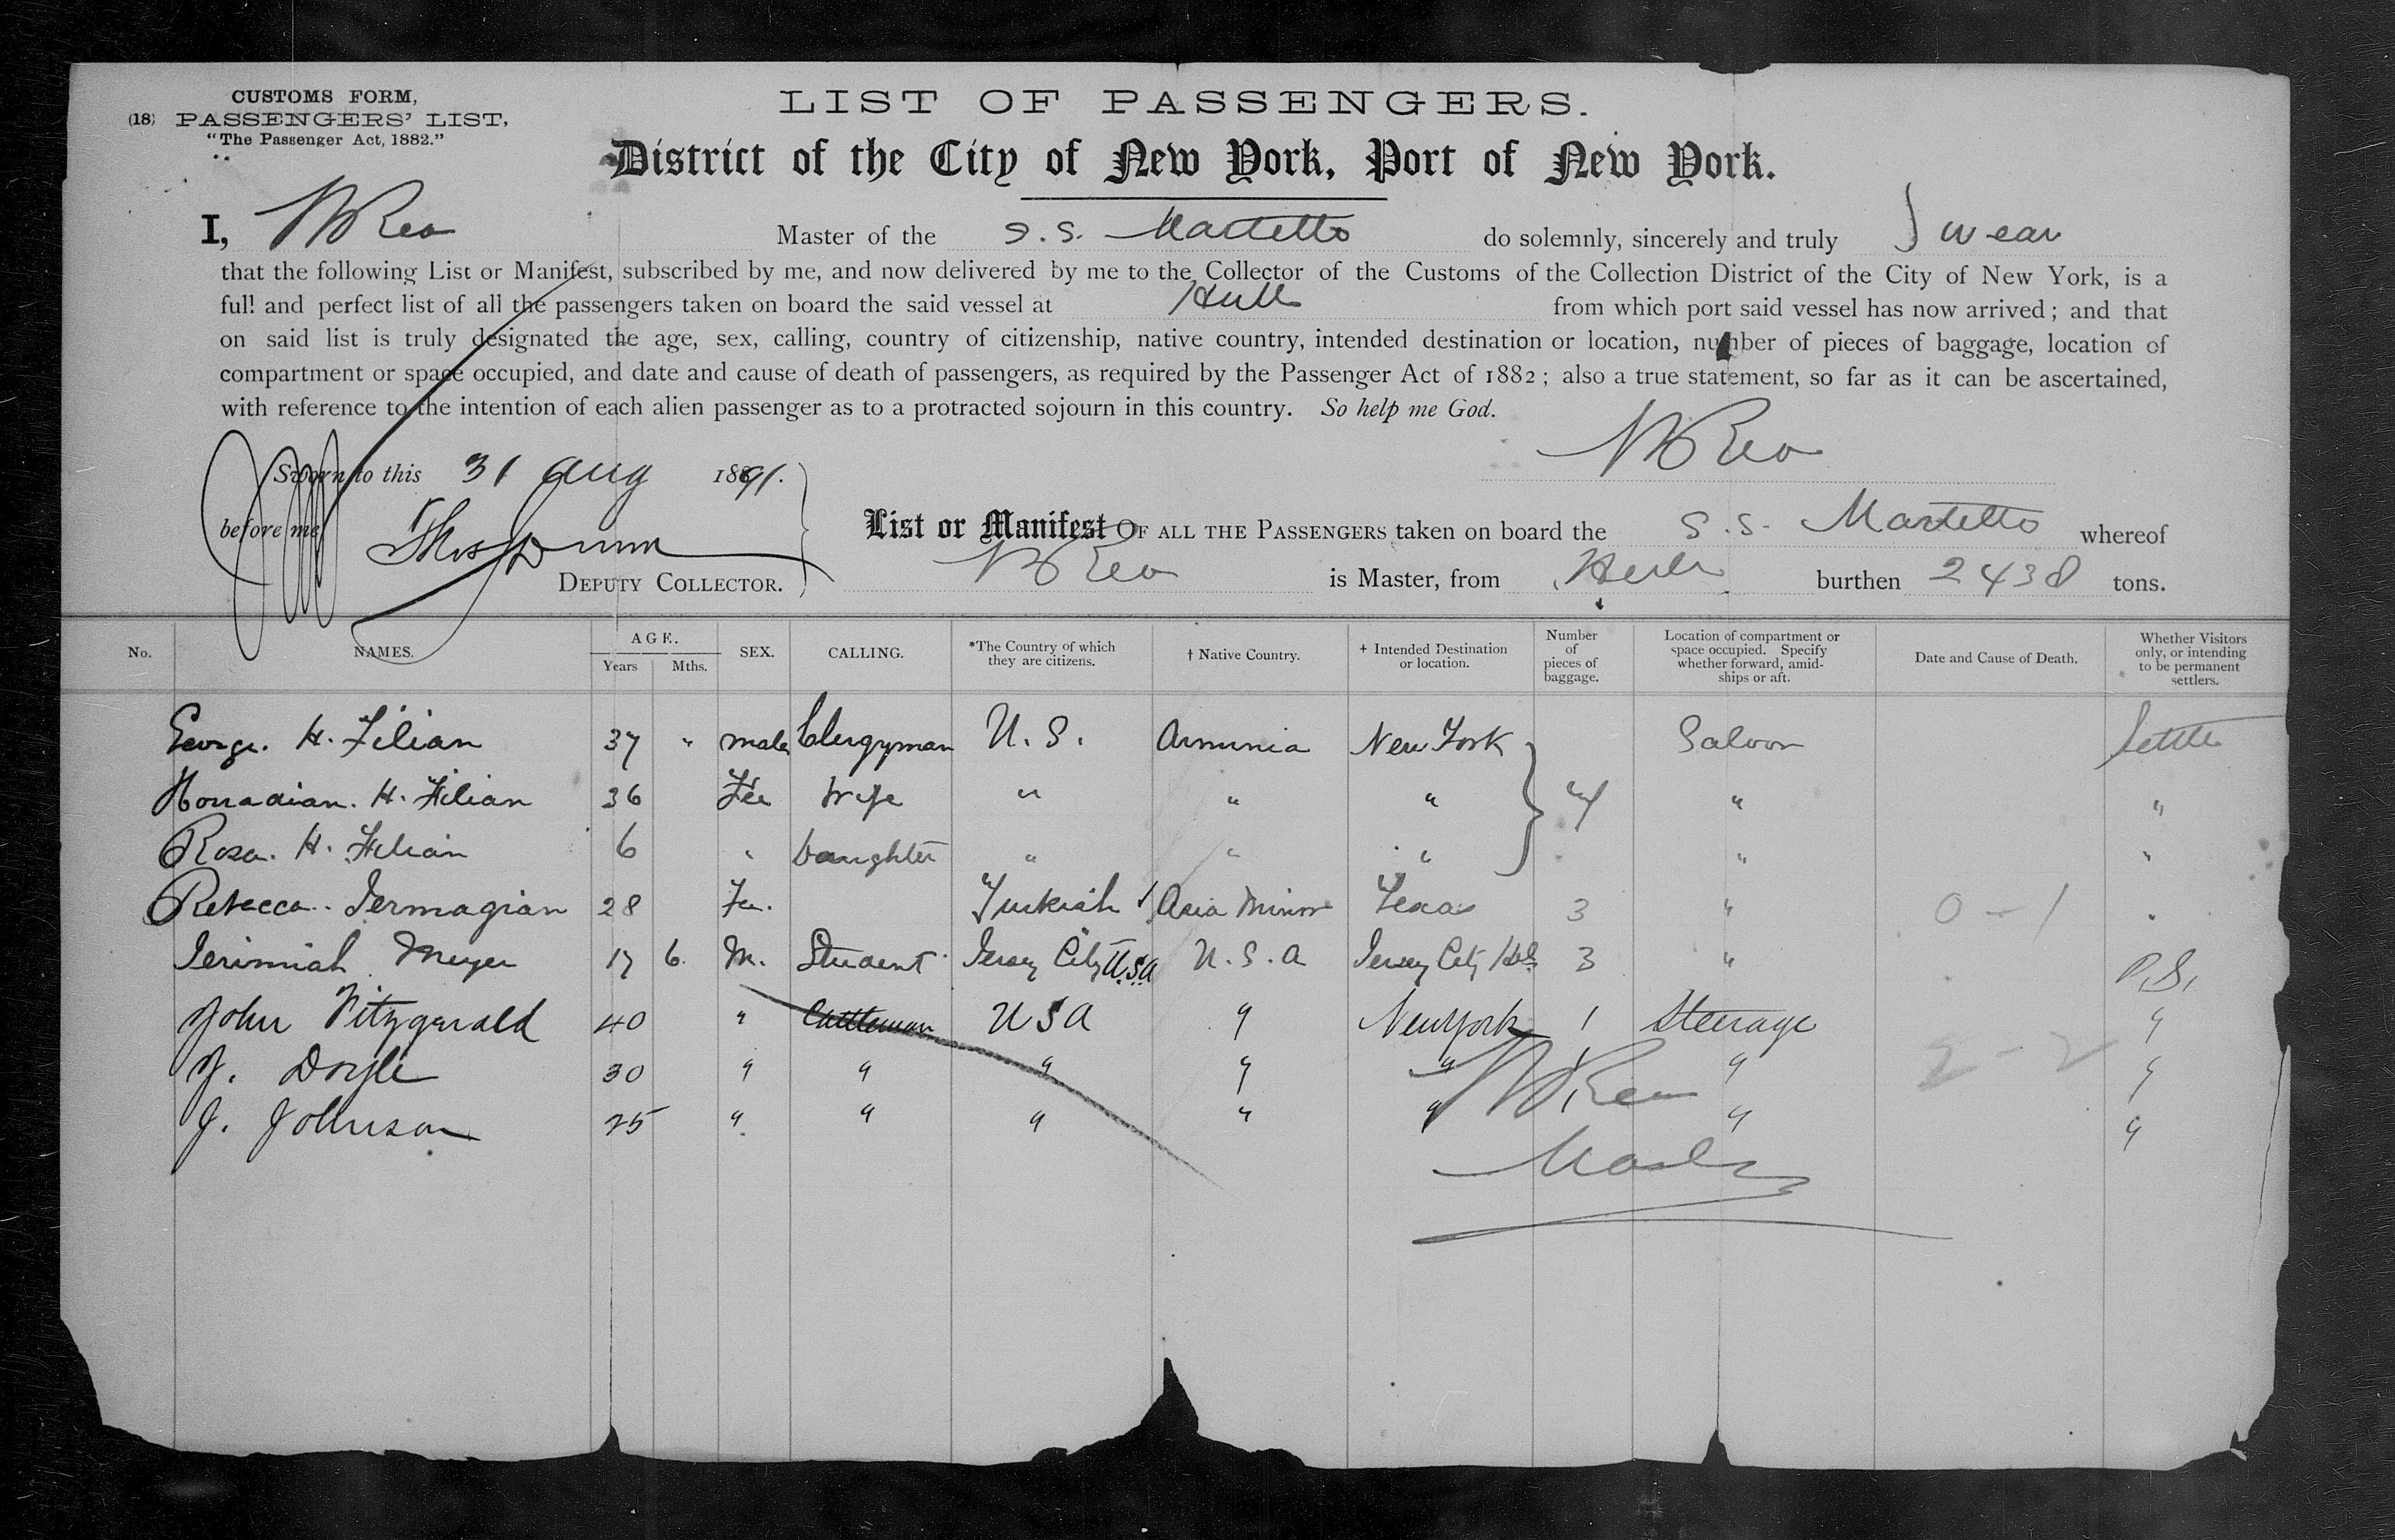 CUSTOMS FORM,
(18) PASSENGERS' LIST,
"The Passenger Act, 1882."
LIST OF PASSENGERS.
District of the City of New York, Port of New York.
I, W Rea Master of the S.S. Martello do solemnly, sincerely and truly Swear
that the following List or Manifest, subscribed by me, and now delivered by me to the Collector of the Customs of the Collection District of the City of New York, is a
full and perfect list of all the passengers taken on board the said vessel at Hull from which port said vessel has now arrived; and that
on said list is truly designated the age, sex, calling, country of citizenship, native country, intended destination or location, number of pieces of baggage, location of
compartment or space occupied, and date and cause of death of passengers, as required by the Passenger Act of 1882; also a true statement, so far as it can be ascertained,
with reference to the intention of each alien passenger as to a protracted sojourn in this country. So help me God.
W Rea
Sworn to this 31 Aug 1891.
before me Thos Dunn
DEPUTY COLLECTOR.
List or Manifest OF ALL THE PASSENGERS taken on board the S.S. Martello whereof
W Rea is Master, from Hull burthen 2438 tons.
No. NAMES. AGE. Years Mths. SEX. CALLING. *The Country of which they are citizens. † Native Country. + Intended Destination or location. Number of pieces of baggage. Location of compartment or space occupied. Specify whether forward, amidships or aft. Date and Cause of Death. Whether Visitors only, or intending to be permanent settlers.
George. H. Filian 37 " male Clergyman U.S. Armenia New York Saloon Settle
H. Filian 36 Fe wife " " " 4 " "
Rosa. H. Filian 6 " Daughter " " " " "
Rebecca. Jermagian 28 Fe. Turkish Asia Minor Texas 3 " 0-1 "
Jerimiah Meyer 17 6 M. Student Jersey City U.S.A U.S.A Jersey City 3 " P.S.
John Fitzgerald 40 " Cattleman USA " New York 1 Steerage "
J. Doyle 30 " " " " " 1 " 2-2 "
J. Johnson 25 " " " " " 1 " "
W Rea
Master